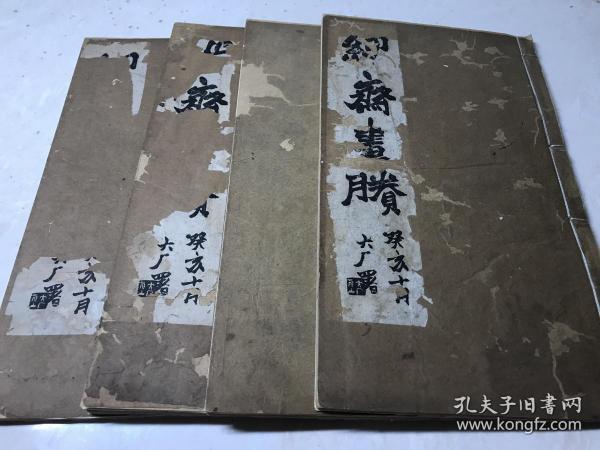 紉齋畫賸
癸亥十月
大厂署
齋
癸亥十月
大厂署
亥十月
厂署
孔夫子旧書网
www.kongfz.com